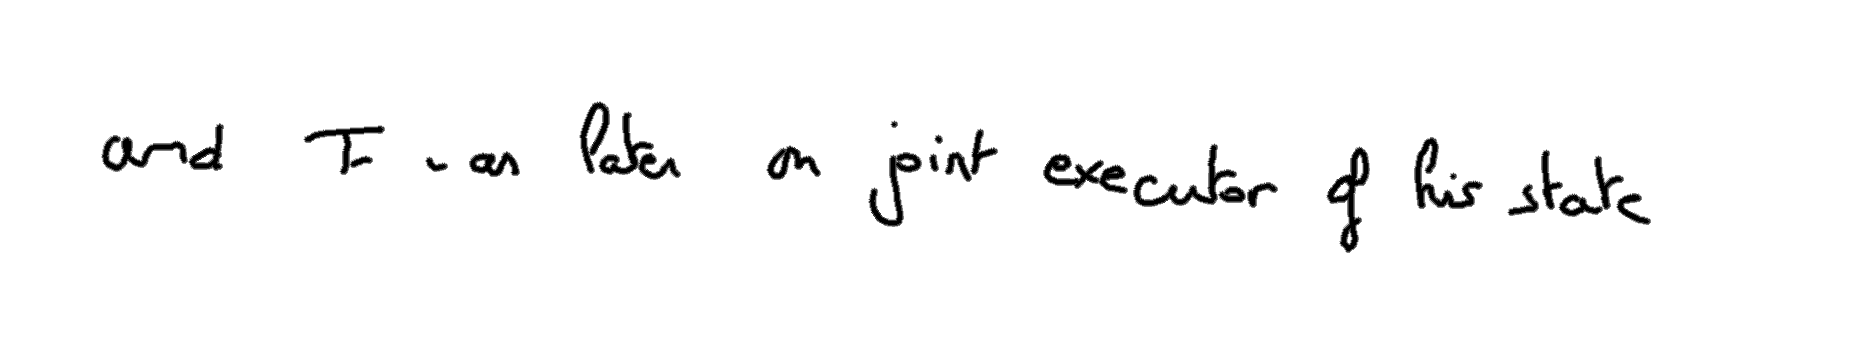 and I was later on joint executor of his state